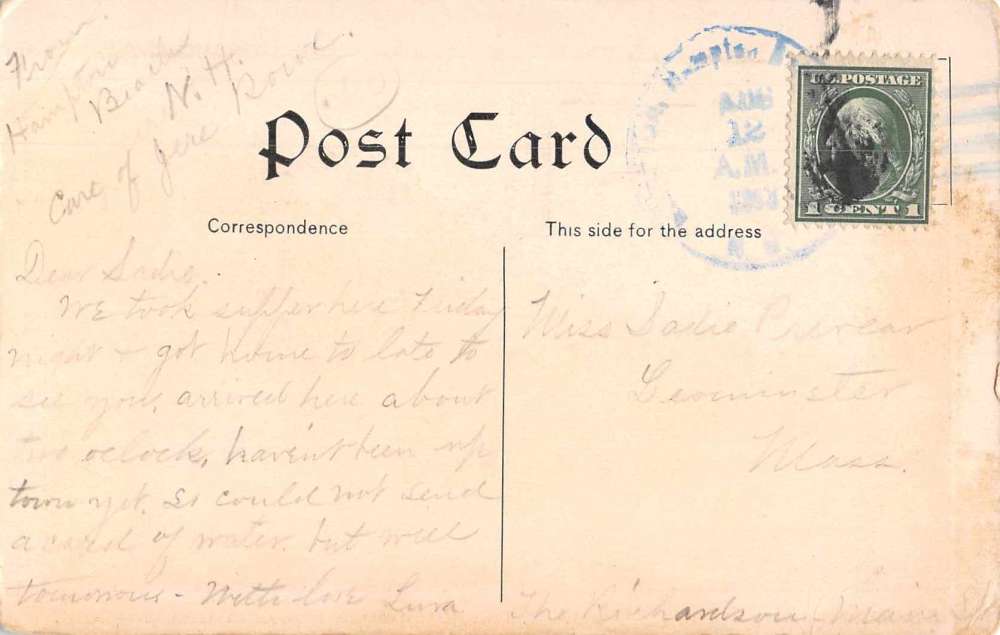 From
Hampton
Beach
N. H.
Care of Jere Rowe.
Post Card
Hampton
U.S. POSTAGE
1 CENT 1
Correspondence
This side for the address
Dear Sadie.
We took supper here Friday
night + got home to late to
see you, arrived here about
two oclock, havent been up
town yet. So could not send
a card of water. but will
tomorrow - With love Lura
Miss Sadie
Leominster
Mass.
The Richardson, Main St